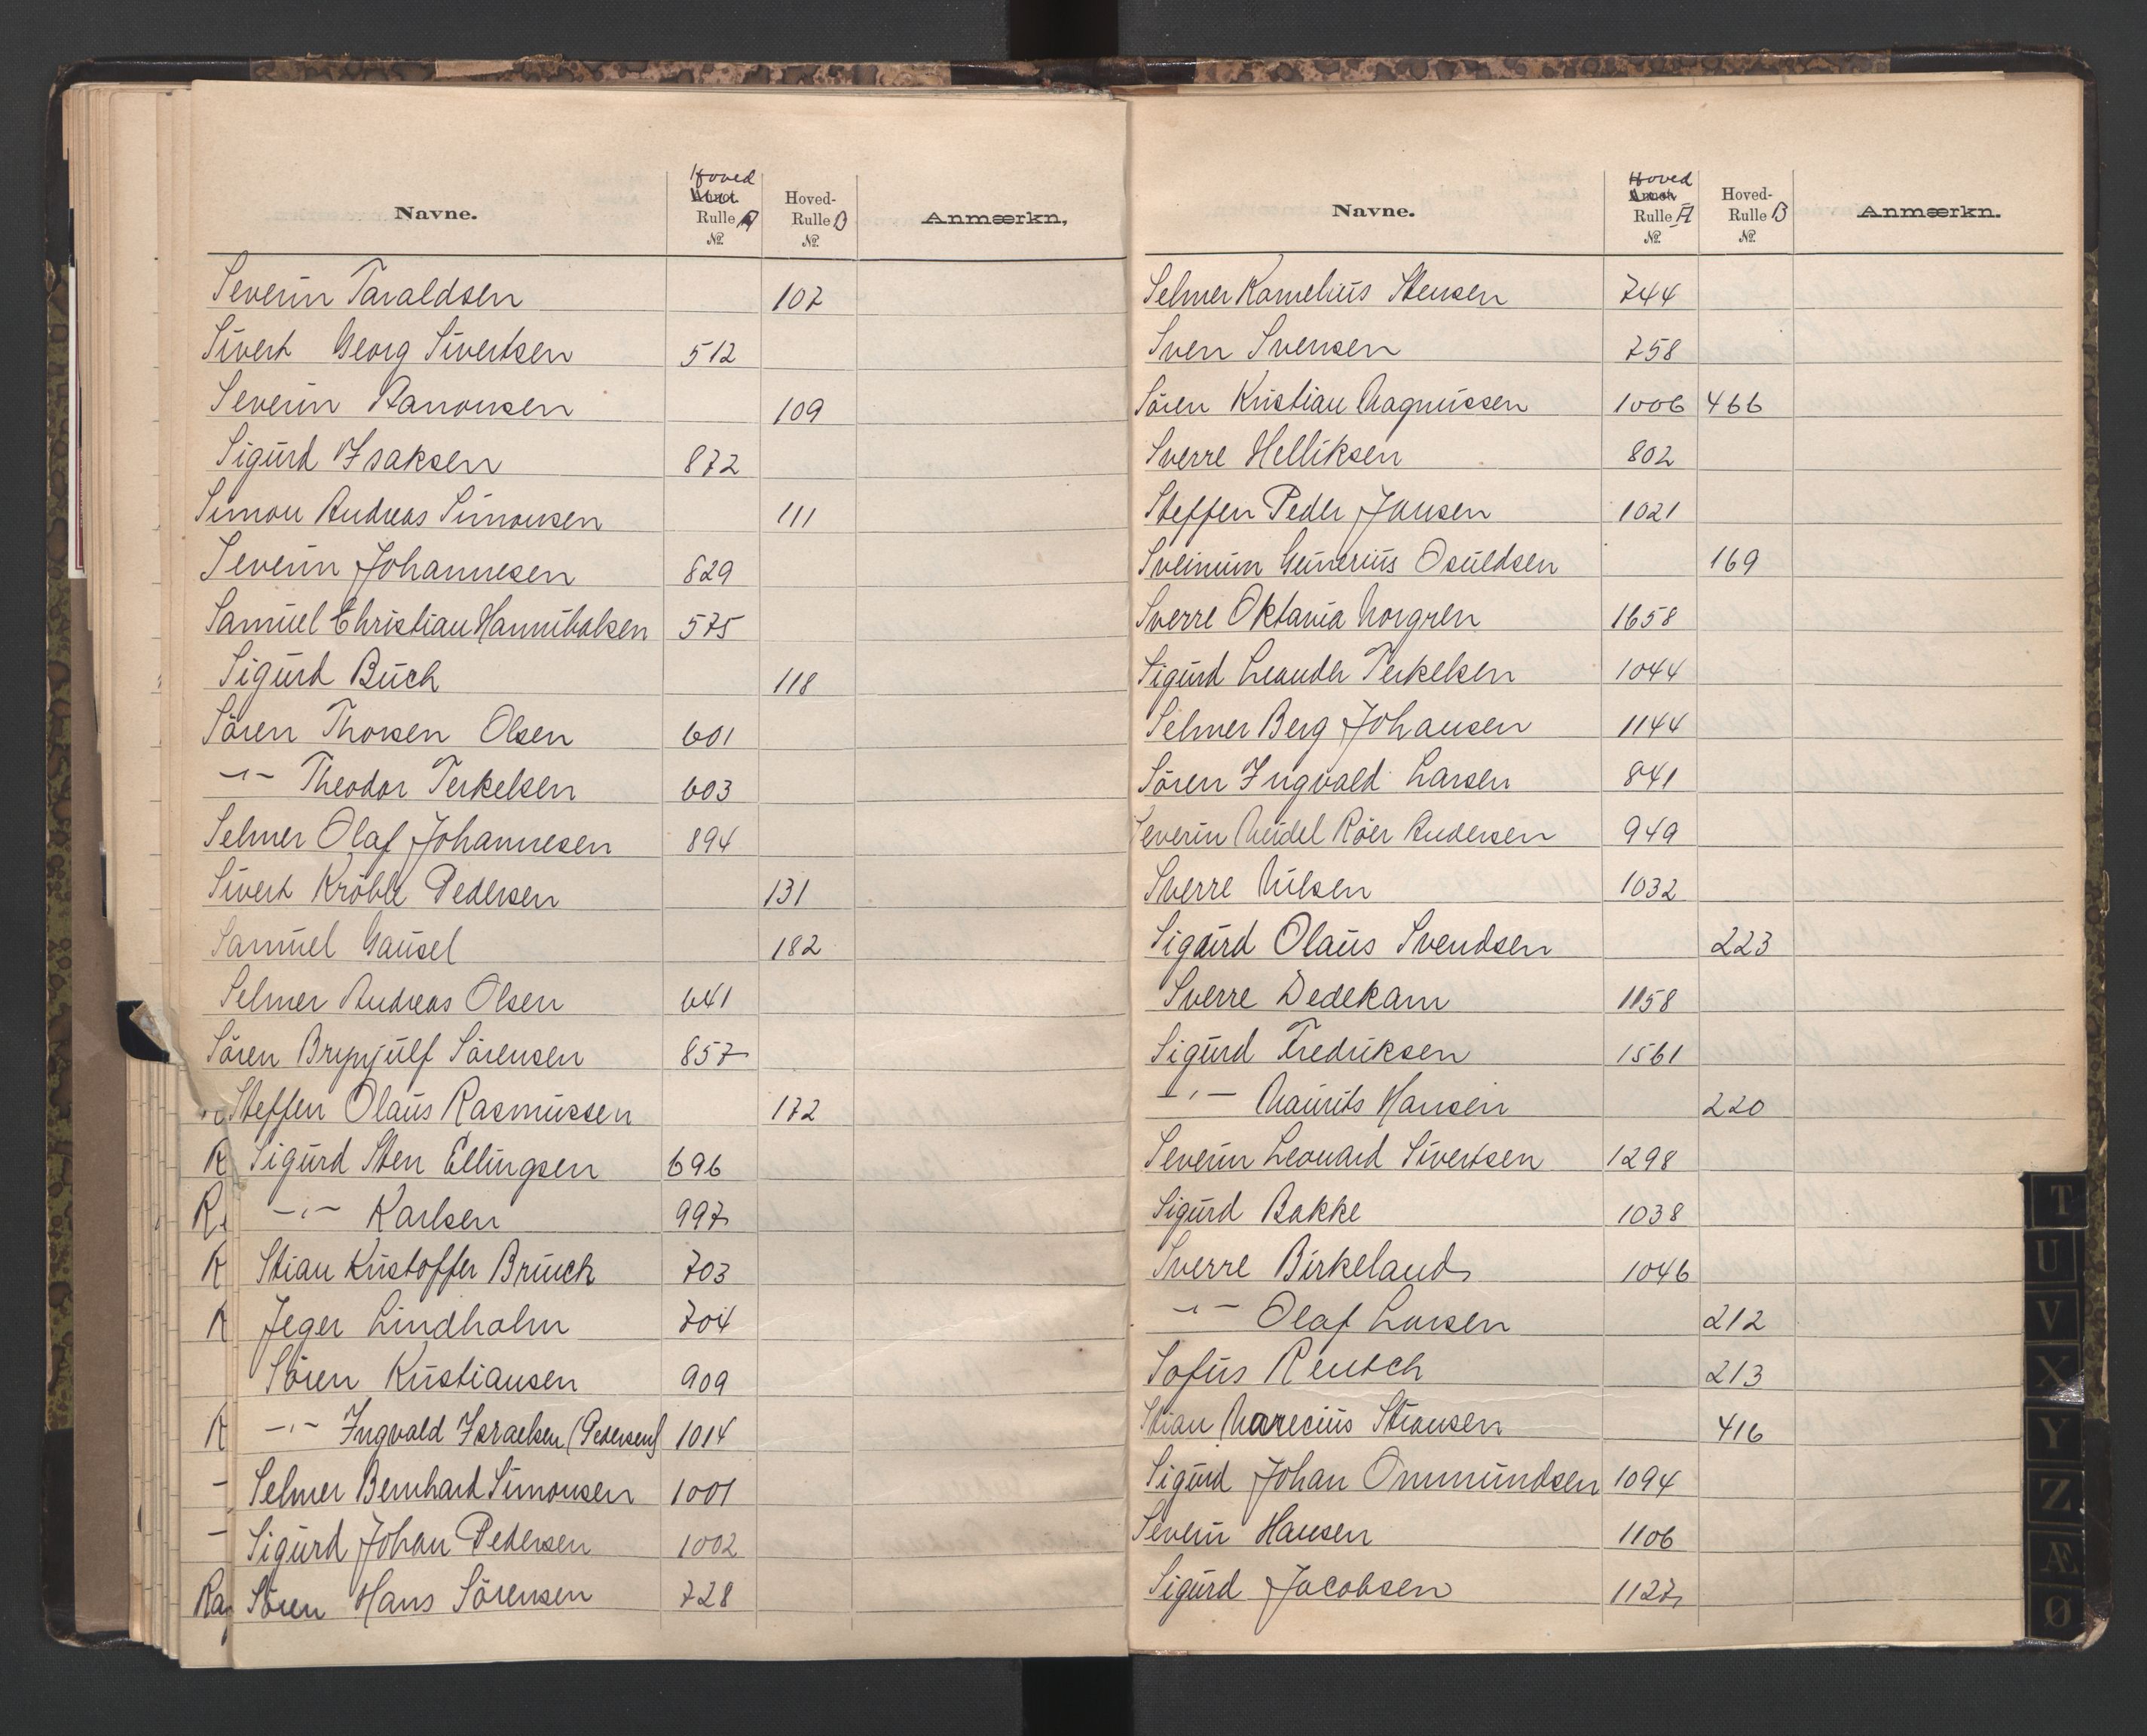 Navne. Hoved Rulle A No. Hoved-Rulle B No. Anmærkn,
Severin Taraldsen 107
Sivert Georg Sivertsen 512
Severin Aanonsen 109
Sigurd Isaksen 872
Simon Andreas Simonsen 111
Severin Johannesen 829
Samuel Christian Hannibalsen 575
Sigurd Buch 118
Sören Thorsen Olsen 601
-"- Theodor Terkelsen 603
Selmer Olaf Johannesen 894
Sivert Pedersen 131
Samuel Gausel 182
Selmer Andreas Olsen 641
Sören Brynjulf Sörensen 857
Steffen Olaus Rasmussen 172
R Sigurd Sten Ellingsen 696
R -"- Karlsen 997
R Stian Kristoffer Bruuck 703
R Jeger Lindholm 704
Sören Kristiansen 909
R -"- Ingvald Israelsen (Pedersen) 1014
- Selmer Bernhard Simonsen 1001
- Sigurd Johan Pedersen 1002
Ra Sören Hans Sörensen 728
Navne. Hoved Rulle A No. Hoved-Rulle B No. Anmærkn.
Selmer Kornelius Stensen 744
Sven Svensen 758
Sören Kristian Magnussen 1006 466
Sverre Helliksen 802
Steffen Peder Jansen 1021
Sveinum Gunerius Osuldsen 169
Sverre Oktavia Norgren 1658
Sigurd Leander Terkelsen 1044
Selmer Berg Johansen 1144
Sören Ingvald Larsen 841
Severin Meidel Röer Andersen 949
Sverre Nilsen 1032
Sigurd Olaus Svendsen 223
Sverre Dedekam 1158
Sigurd Fredriksen 1561
-"- Maurits Hansen 220
Severin Leonard Sivertsen 1298
Sigurd Bakke 1038
Sverre Birkeland 1046
-"- Olaf Larsen 212
Sofus Rentsch 213
Stian Marecius Stiansen 416
Sigurd Johan Ommundsen 1094
Severin Hansen 1106
Sigurd Jacobsen 1127
T
U
V
X
Y
Z
Æ
Ø